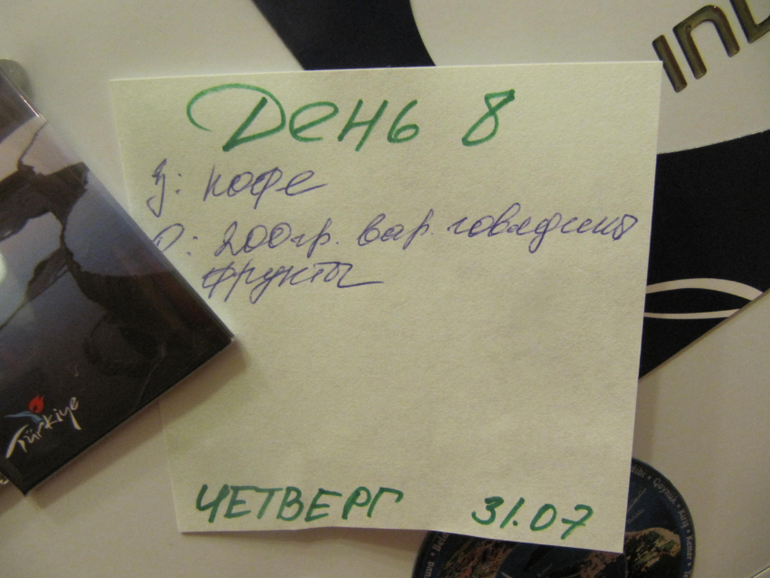 День 8
З: кофе
О: 200гр. вар. говядины
фрукты
ЧЕТВЕРГ 31.07
Türkiye